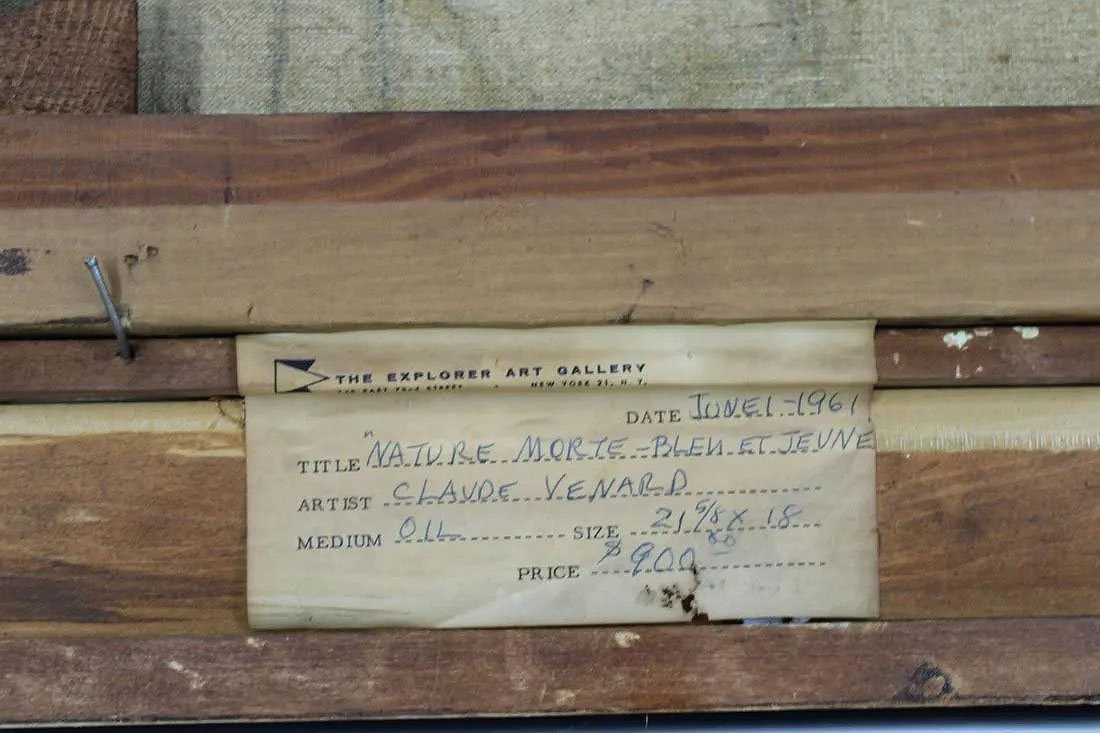 THE EXPLORER ART GALLERY
NEW YORK 21, N. Y.
DATE JUNE 1-1961
TITLE "NATURE MORTE-BLEU ET JEUNE
ARTIST CLAUDE VENARD
MEDIUM OIL SIZE 21 5/8 X 18
PRICE $900 00